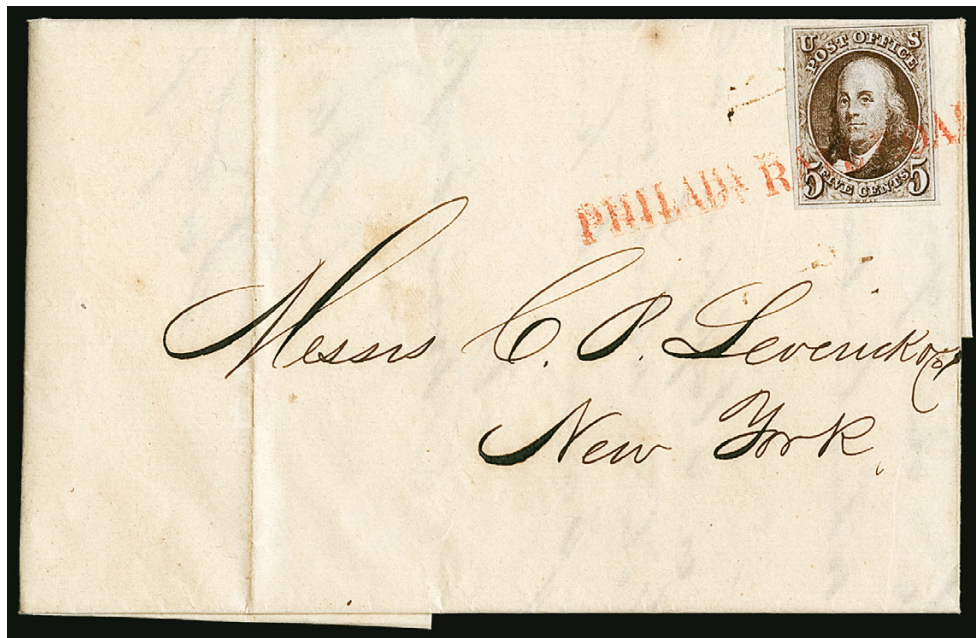 U S
POST OFFICE
FIVE CENTS
5 5
PHILADA RAILROAD
Messrs C. P. Leverich & Co
New York